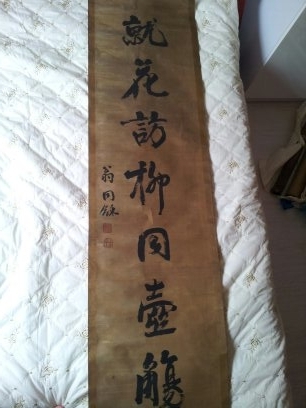 就花訪柳同壺觴
翁同龢